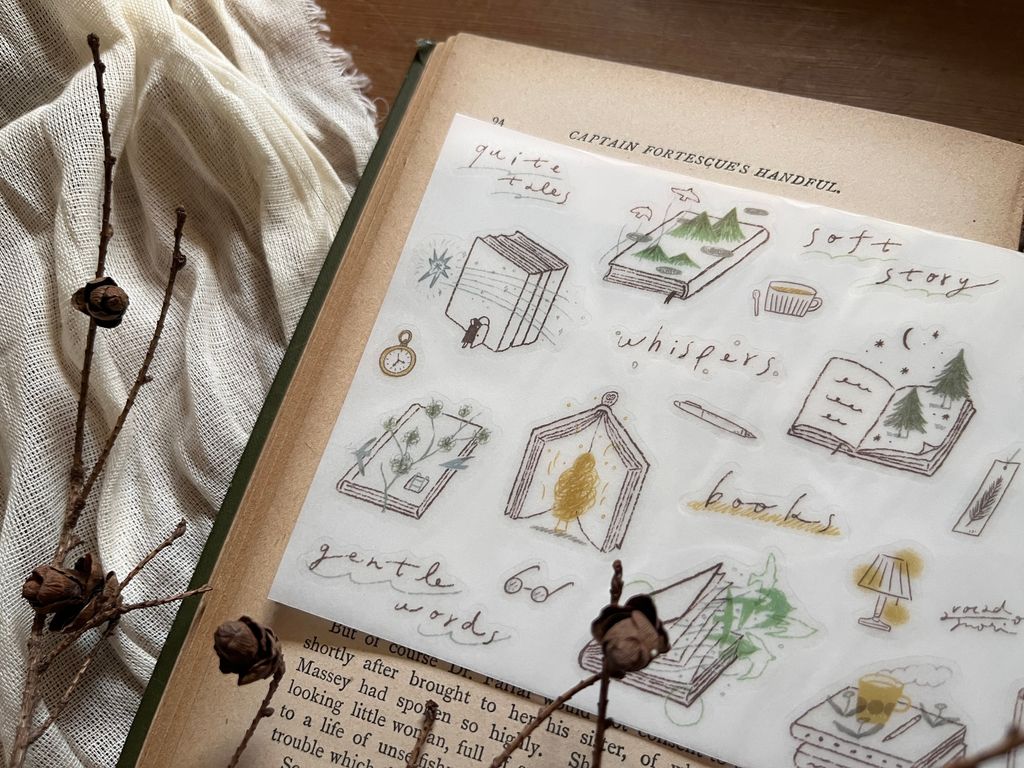 94
CAPTAIN FORTESCUE'S HANDFUL.
quite
tales
soft
story
whispers
books
gentle
words
read
more
But of course Dr. Farrar would not consent
shortly after brought to her his sister, of wh
Massey had spoken so highly. Sh
looking little woman, full of
to a life of unselfish
trouble which
So